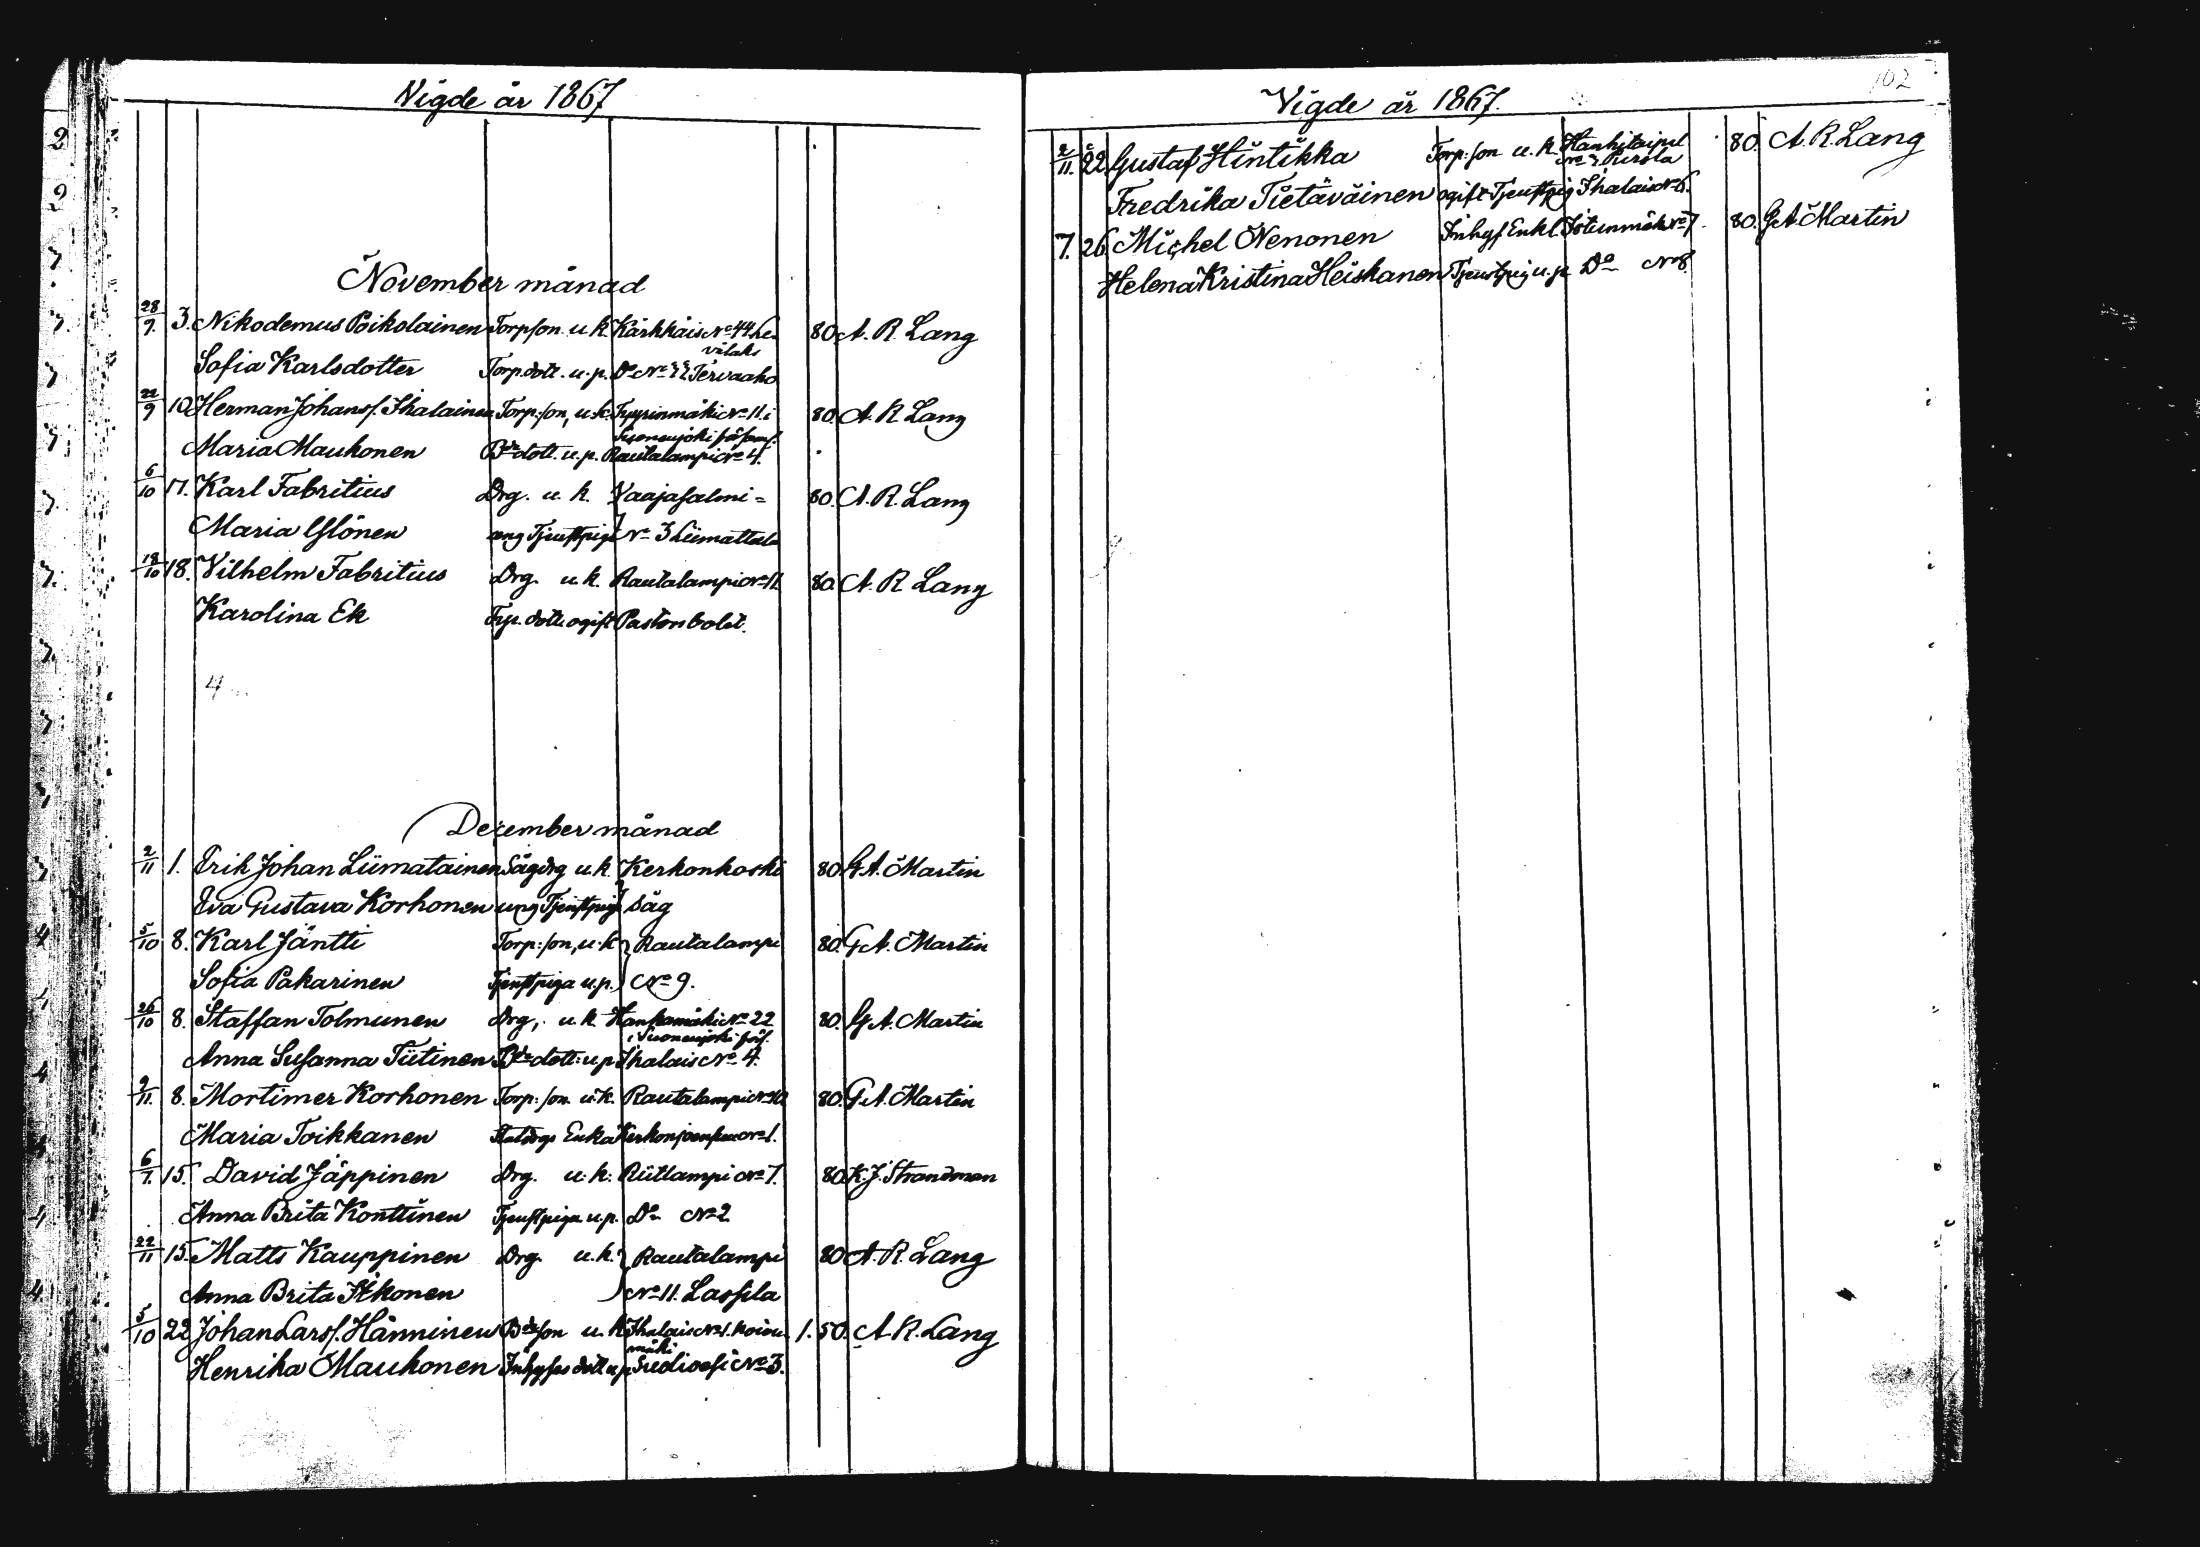 Vigde år 1867
November månad
28/9 3. Nikodemus Poikolainen Torpson u. k. Kärkkäis No 44 Le- 80. A. R. Lang
välaks
Sofia Karlsdotter Torp.dott. u. p. Do No 22 Tervaaho
22/9 10 Herman Johansf. Ihalainen Torp:son, u. k. Tyyrinmäki No 11 i 80. A. R. Lang
Suonenjoki
Maria Maukonen Bde dott. u. p. Rautalampi No 4.
6/10 17. Karl Fabritius Drg. u. k. Vaajasalmi= 80. A. R. Lang
Maria Ylönen ung Tjenstpiga No 3 Liimattala
18/10 18. Vilhelm Fabritius Drg. u. k. Rautalampi No 11. 80. A. R. Lang
Karolina Ek dott. ogift Pastorsbolet.
4
December månad
2/11 1. Erik Johan Liimatainen Sågdrg u. k. Kerkonkoski 80. G. A. Martin
Eva Gustava Korhonen ung Tjenstpiga såg
5/10 8. Karl Jäntti Torp:son, u. k. Rautalampi 80. G. A. Martin
Sofia Pakarinen Tjenstpiga u. p. No 9.
26/10 8. Staffan Tolmunen Drg, u. k. Hankamäki No 22 80. G. A. Martin
i Suonenjoki
Anna Susanna Tiitinen Bde dott: u. p. Ihalais No 4.
2/11. 8. Mortimer Korhonen Torp: son u. k. Rautalampi No 10 80. G. A. Martin
Maria Toikkanen Enka No 1.
6/7. 15. David Jäppinen Drg. u. k: Riitlampi No 7. 80. K. J. Strandman
Anna Brita Konttinen Tjenstpiga u. p. Do No 2
22/11 15. Matts Kauppinen Drg. u. k. Rautalampi 80 A. R. Lang
Anna Brita Itkonen No 11. Lassila
5/10 22 Johan Larsf. Hänninen Bde son u. k. Ihalais No 1. Koivu 1. 50. A. R. Lang
mäki
Henrika Maukonen Inhyses dott u. p. No 3.
Vigde år 1867.
102
2/11. 22. Gustaf Hintikka Torp: son u. k. Hankitaipal 80. A. R. Lang
Fredrika Tietäväinen ogift Tjenstpig Ihalais No 6.
7. 26 Michel Nenonen Inhys Enkl. Istunmäki No 7. 80. G. A. Martin
Helena Kristina Heiskanen Tjenstpig u. p. Do No 8.